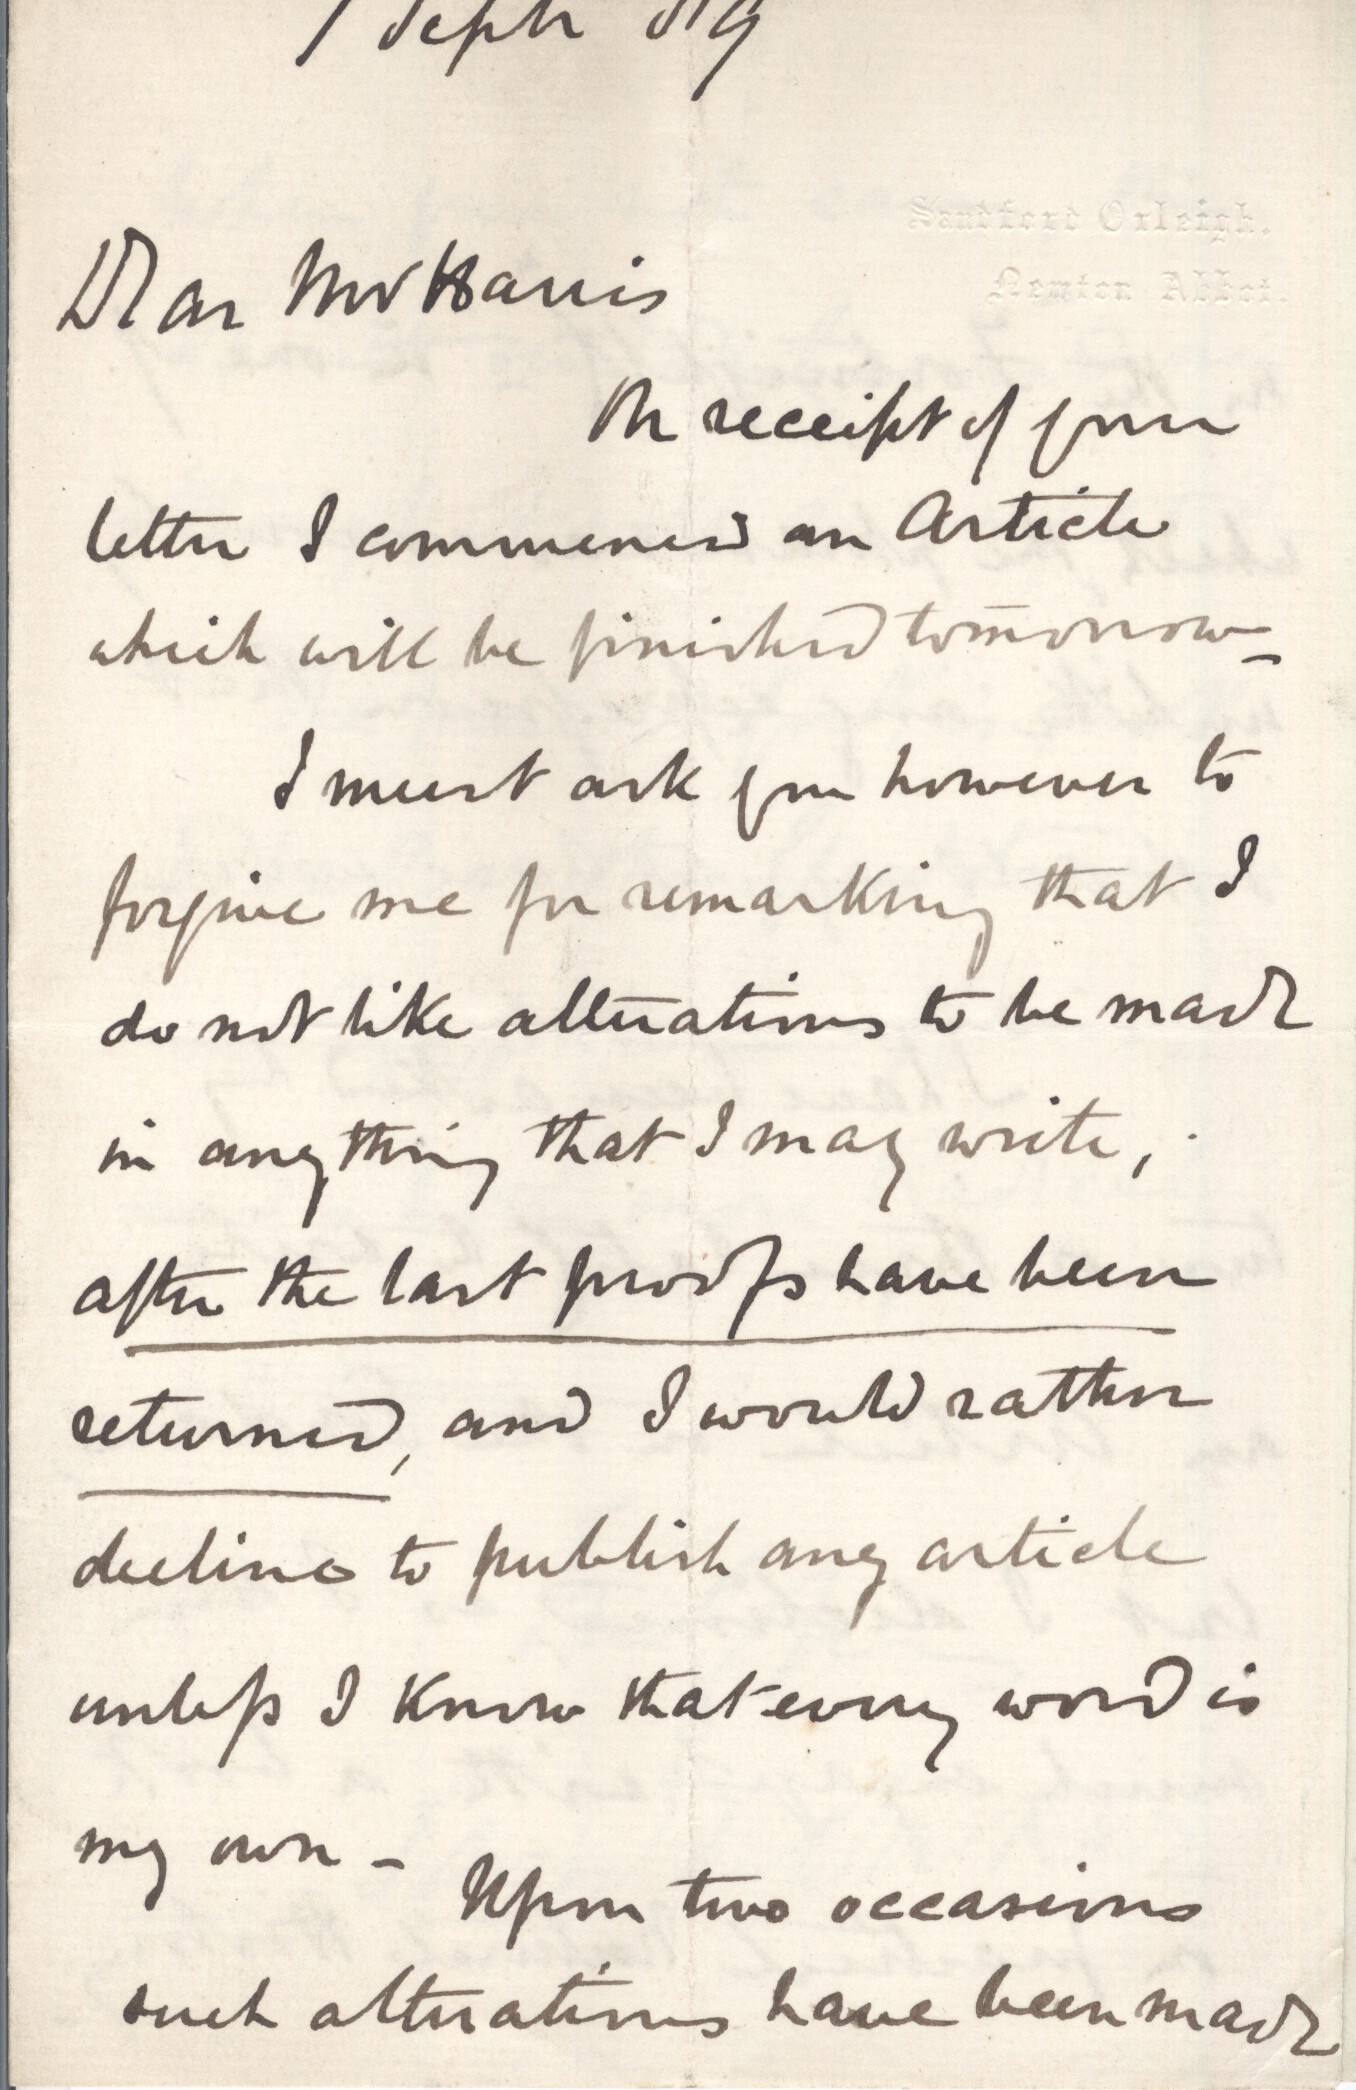 7 Septr 89
Sandford Orleigh.
Newton Abbot.
Dear Mr Harris
On receipt of your
letter I commenced an Article
which will be finished tomorrow –
I must ask you however to
forgive me for remarking that I
do not like alterations to be made
in anything that I may write,
after the last proofs have been
returned, and I would rather
decline to publish any article
unless I know that every word is
my own –
Upon two occasions
such alterations have been made